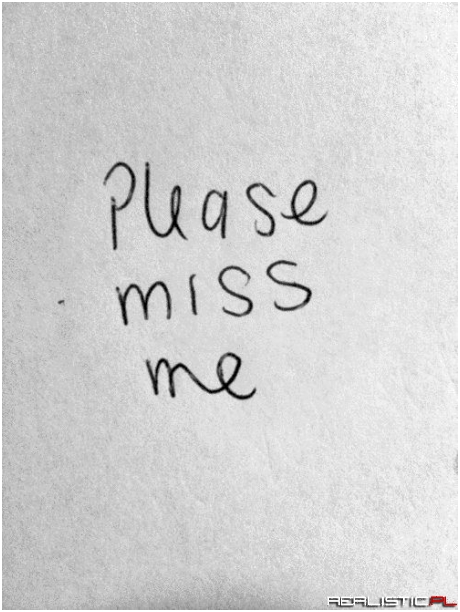 Please
miss
me
REALISTIC.PL